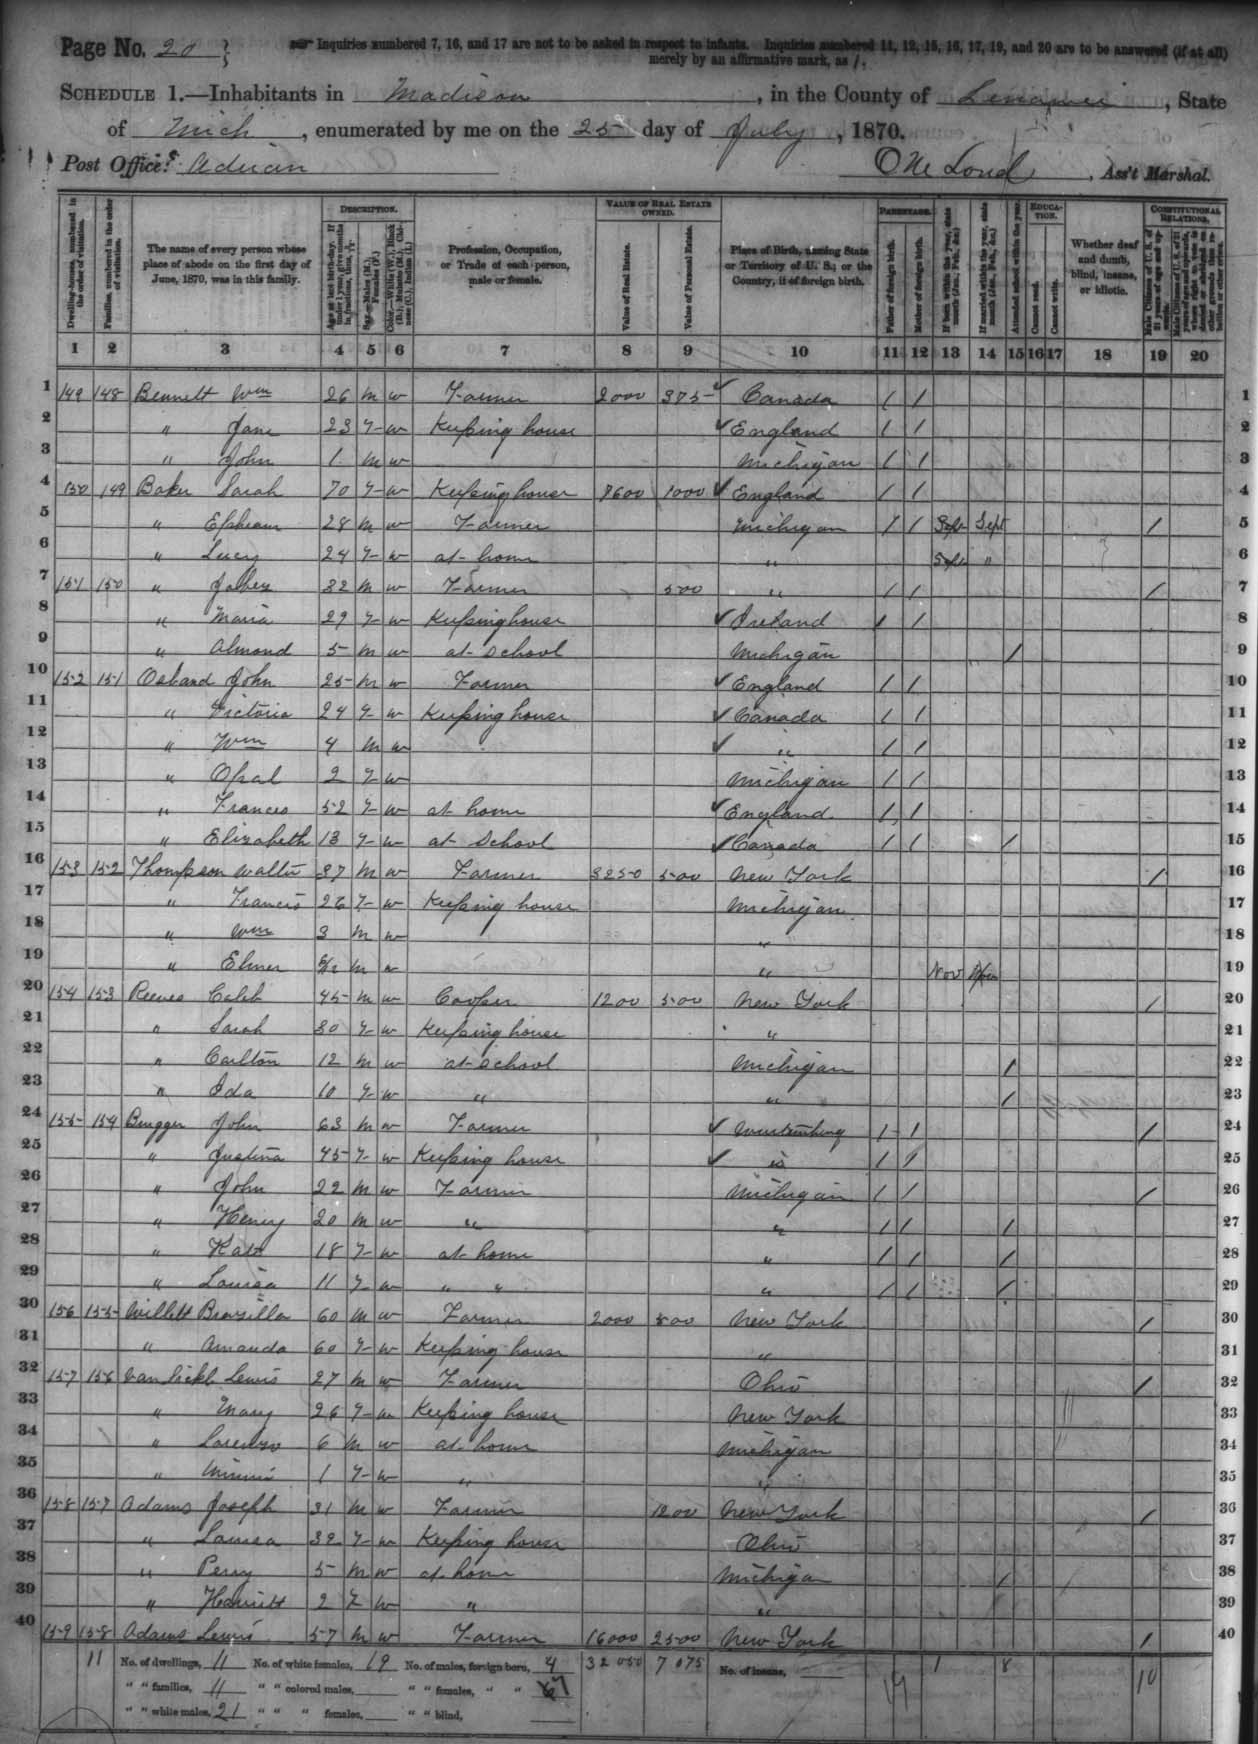 Page No. 20
Inquiries numbered 7, 16, and 17 are not to be asked in respect to infants. Inquiries numbered 11, 12, 15, 16, 17, 19, and 20 are to be answered (if at all)
merely by an affirmative mark, as /.
SCHEDULE 1.—Inhabitants in Madison, in the County of Lenawee, State
of Mich, enumerated by me on the 25 day of July, 1870.
Post Office: Adrian
Ass't Marshal.
DESCRIPTION.
VALUE OF REAL ESTATE OWNED.
PARENTAGE.
EDUCATION.
CONSTITUTIONAL RELATIONS.
Dwelling-houses, numbered in the order of visitation.
Families, numbered in the order of visitation.
The name of every person whose place of abode on the first day of June, 1870, was in this family.
Profession, Occupation, or Trade of each person, male or female.
Value of Real Estate.
Value of Personal Estate.
Place of Birth, naming State or Territory of U. S.; or the Country, if of foreign birth.
Father of foreign birth.
Mother of foreign birth.
Attended school within the year.
Cannot read.
Cannot write.
Whether deaf and dumb, blind, insane, or idiotic.
1 2 3 4 5 6 7 8 9 10 11 12 13 14 15 16 17 18 19 20
1 149 148 Bennett Wm 26 m w Farmer 2000 375 Canada / / 1
2 " Jane 23 F w Keeping house England / / 2
3 " John 1 m w Michigan / / 3
4 150 149 Baker Sarah 70 F w Keeping house 7600 1000 England / / 4
5 " Ephraim 28 m w Farmer Michigan / / Sept Sept / 5
6 " Lucy 24 F w at home " " 6
7 151 150 " Jabez 32 m w Farmer 500 " / / / 7
8 " Maria 29 F w Keeping house Ireland / / 8
9 " Almond 5 m w at School Michigan / 9
10 152 151 Osband John 25 m w Farmer England / / 10
11 " Victoria 24 F w Keeping house Canada / / 11
12 " Wm 4 m w " / / 12
13 " Opal 2 F w Michigan / / 13
14 " Frances 52 F w at home England / / 14
15 " Elizabeth 13 F w at School Canada / / / 15
16 153 152 Thompson Walter 37 m w Farmer 3250 500 New York / 16
17 " Francis 26 F w Keeping house Michigan 17
18 " Wm 3 m w " 18
19 " Elmer 6/12 m w " Nov 19
20 154 153 Reeves Caleb 45 m w Cooper 1200 500 New York / 20
21 " Sarah 30 F w Keeping house " 21
22 " Carlton 12 m w at School Michigan / 22
23 " Ida 10 F w " " / 23
24 155 154 Brugger John 63 m w Farmer Wurtemburg / / / 24
25 " Justina 45 F w Keeping house " / / 25
26 " John 22 m w Farmer Michigan / / / 26
27 " Henry 20 m w " " / / / 27
28 " Kate 18 F w at home " / / / 28
29 " Louisa 11 F w " " " / / / 29
30 156 155 Willett Brazilla 60 m w Farmer 2000 800 New York / 30
31 " Amanda 60 F w Keeping house " 31
32 157 156 Van Sickle Lewis 27 m w Farmer Ohio / 32
33 " Mary 26 F w Keeping house New York 33
34 " Lorenzo 6 m w at home Michigan 34
35 " Minnie 1 F w " " 35
36 158 157 Adams Joseph 31 m w Farmer 1200 New York / 36
37 " Louisa 32 F w Keeping house Ohio 37
38 " Perry 5 m w at home Michigan / 38
39 " Harriett 2 F w " " 39
40 159 158 Adams Lewis 57 m w Farmer 16000 2500 New York / 40
11 No. of dwellings, 11 No. of white females, 19 No. of males, foreign born, 4 32050 7075 No. of insane, 1 8 10
" " families, 11 " " colored males, " " females, " " 7
" " white males, 21 " " " females, " " blind,